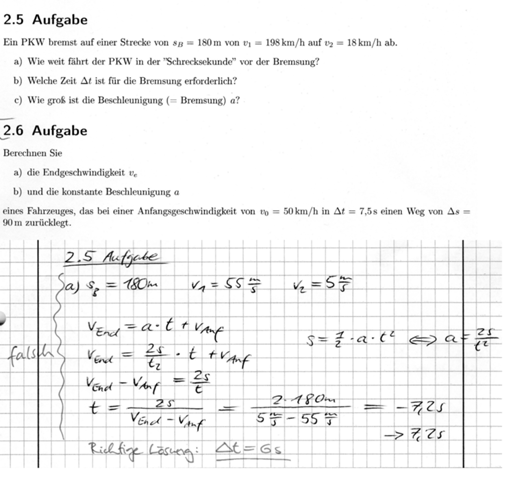 2.5 Aufgabe
Ein PKW bremst auf einer Strecke von s_B = 180 m von v₁ = 198 km/h auf v₂ = 18 km/h ab.
a) Wie weit fährt der PKW in der "Schrecksekunde" vor der Bremsung?
b) Welche Zeit Δt ist für die Bremsung erforderlich?
c) Wie groß ist die Beschleunigung (= Bremsung) a?
2.6 Aufgabe
Berechnen Sie
a) die Endgeschwindigkeit v_e
b) und die konstante Beschleunigung a
eines Fahrzeuges, das bei einer Anfangsgeschwindigkeit von v₀ = 50 km/h in Δt = 7,5 s einen Weg von Δs =
90 m zurücklegt.
2.5 Aufgabe
a) s_B = 180m v₁ = 55 m/s v₂ = 5 m/s
v_End = a · t + v_Anf s = 1/2 · a · t² ⟺ a = 2s/t²
falsch v_End = 2s/t² · t + v_Anf
v_End - v_Anf = 2s/t
t = 2s/(v_End - v_Anf) = 2·180m/(5 m/s - 55 m/s) = -7,2s
→ 7,2s
Richtige Lösung: Δt = 6s